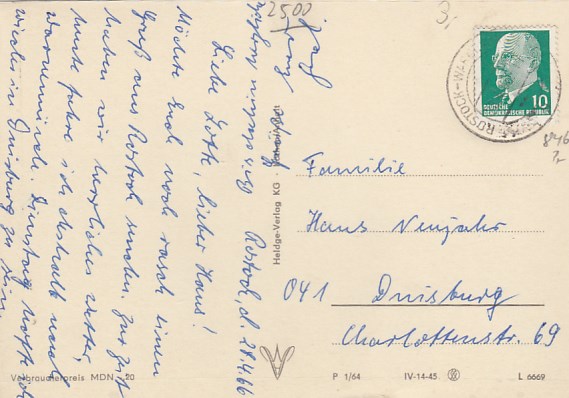 Rostock, d. 24.4.66
Liebe Lotte, lieber Hans!
Möchte Euch noch rasch einen
Gruß aus Rostock senden. Zur Zeit
haben wir herrliches Wetter,
heute fahre ich deshalb nach
Warnemünde. Dienstag hoffe ich
wieder in Duisburg zu sein.
25,00
3,-
ROSTOCK
DEUTSCHE
DEMOKRATISCHE REPUBLIK
10
846
Familie
Hans Neujahr
041 Duisburg
Charlottenstr. 69
Heldge-Verlag KG
Verbraucherpreis MDN —,20
P 1/64 IV-14-45 L 6669